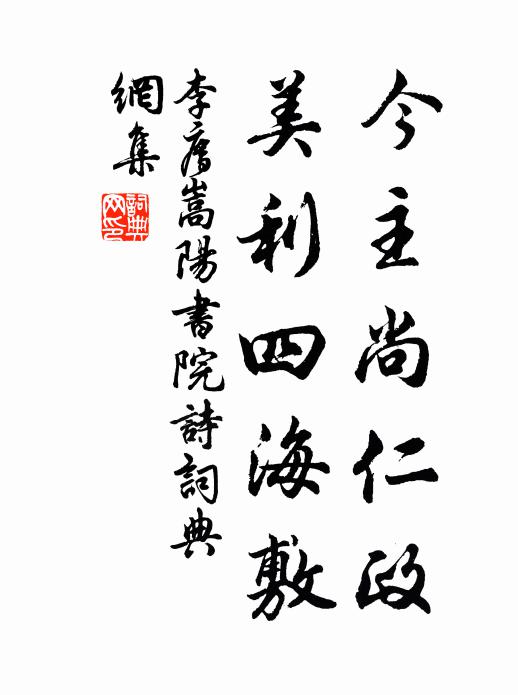 今主尚仁政
美利四海敷
李廌嵩陽書院詩詞典
網集
詞典
网印